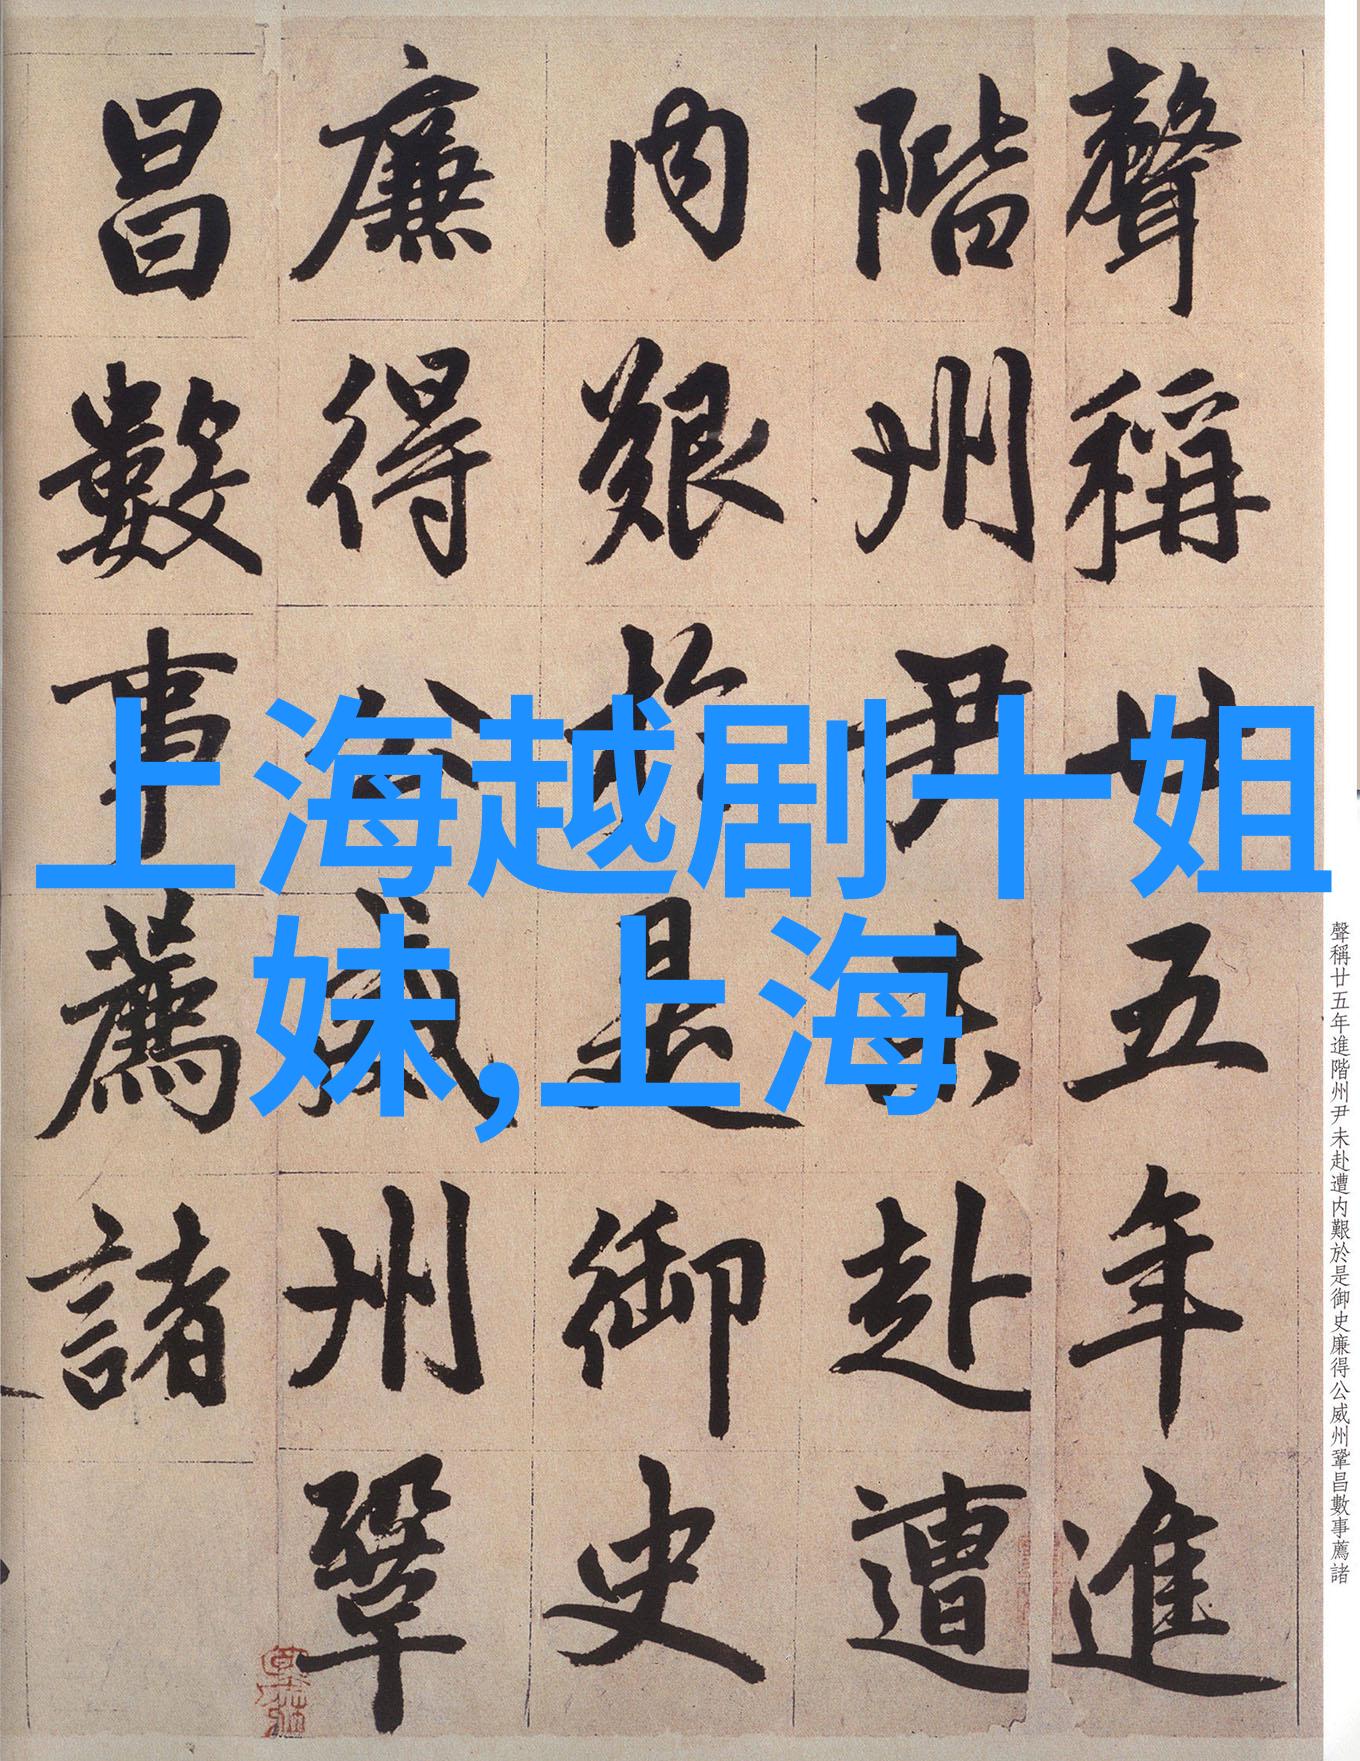 聲稱廿五年進
階州尹未赴遭
内艱於是御史
廉得公威州鞏
昌數事薦諸
上海越剧十姐
妹,上海
聲稱廿五年進階州尹未赴遭内艱於是御史廉得公威州鞏昌數事薦諸